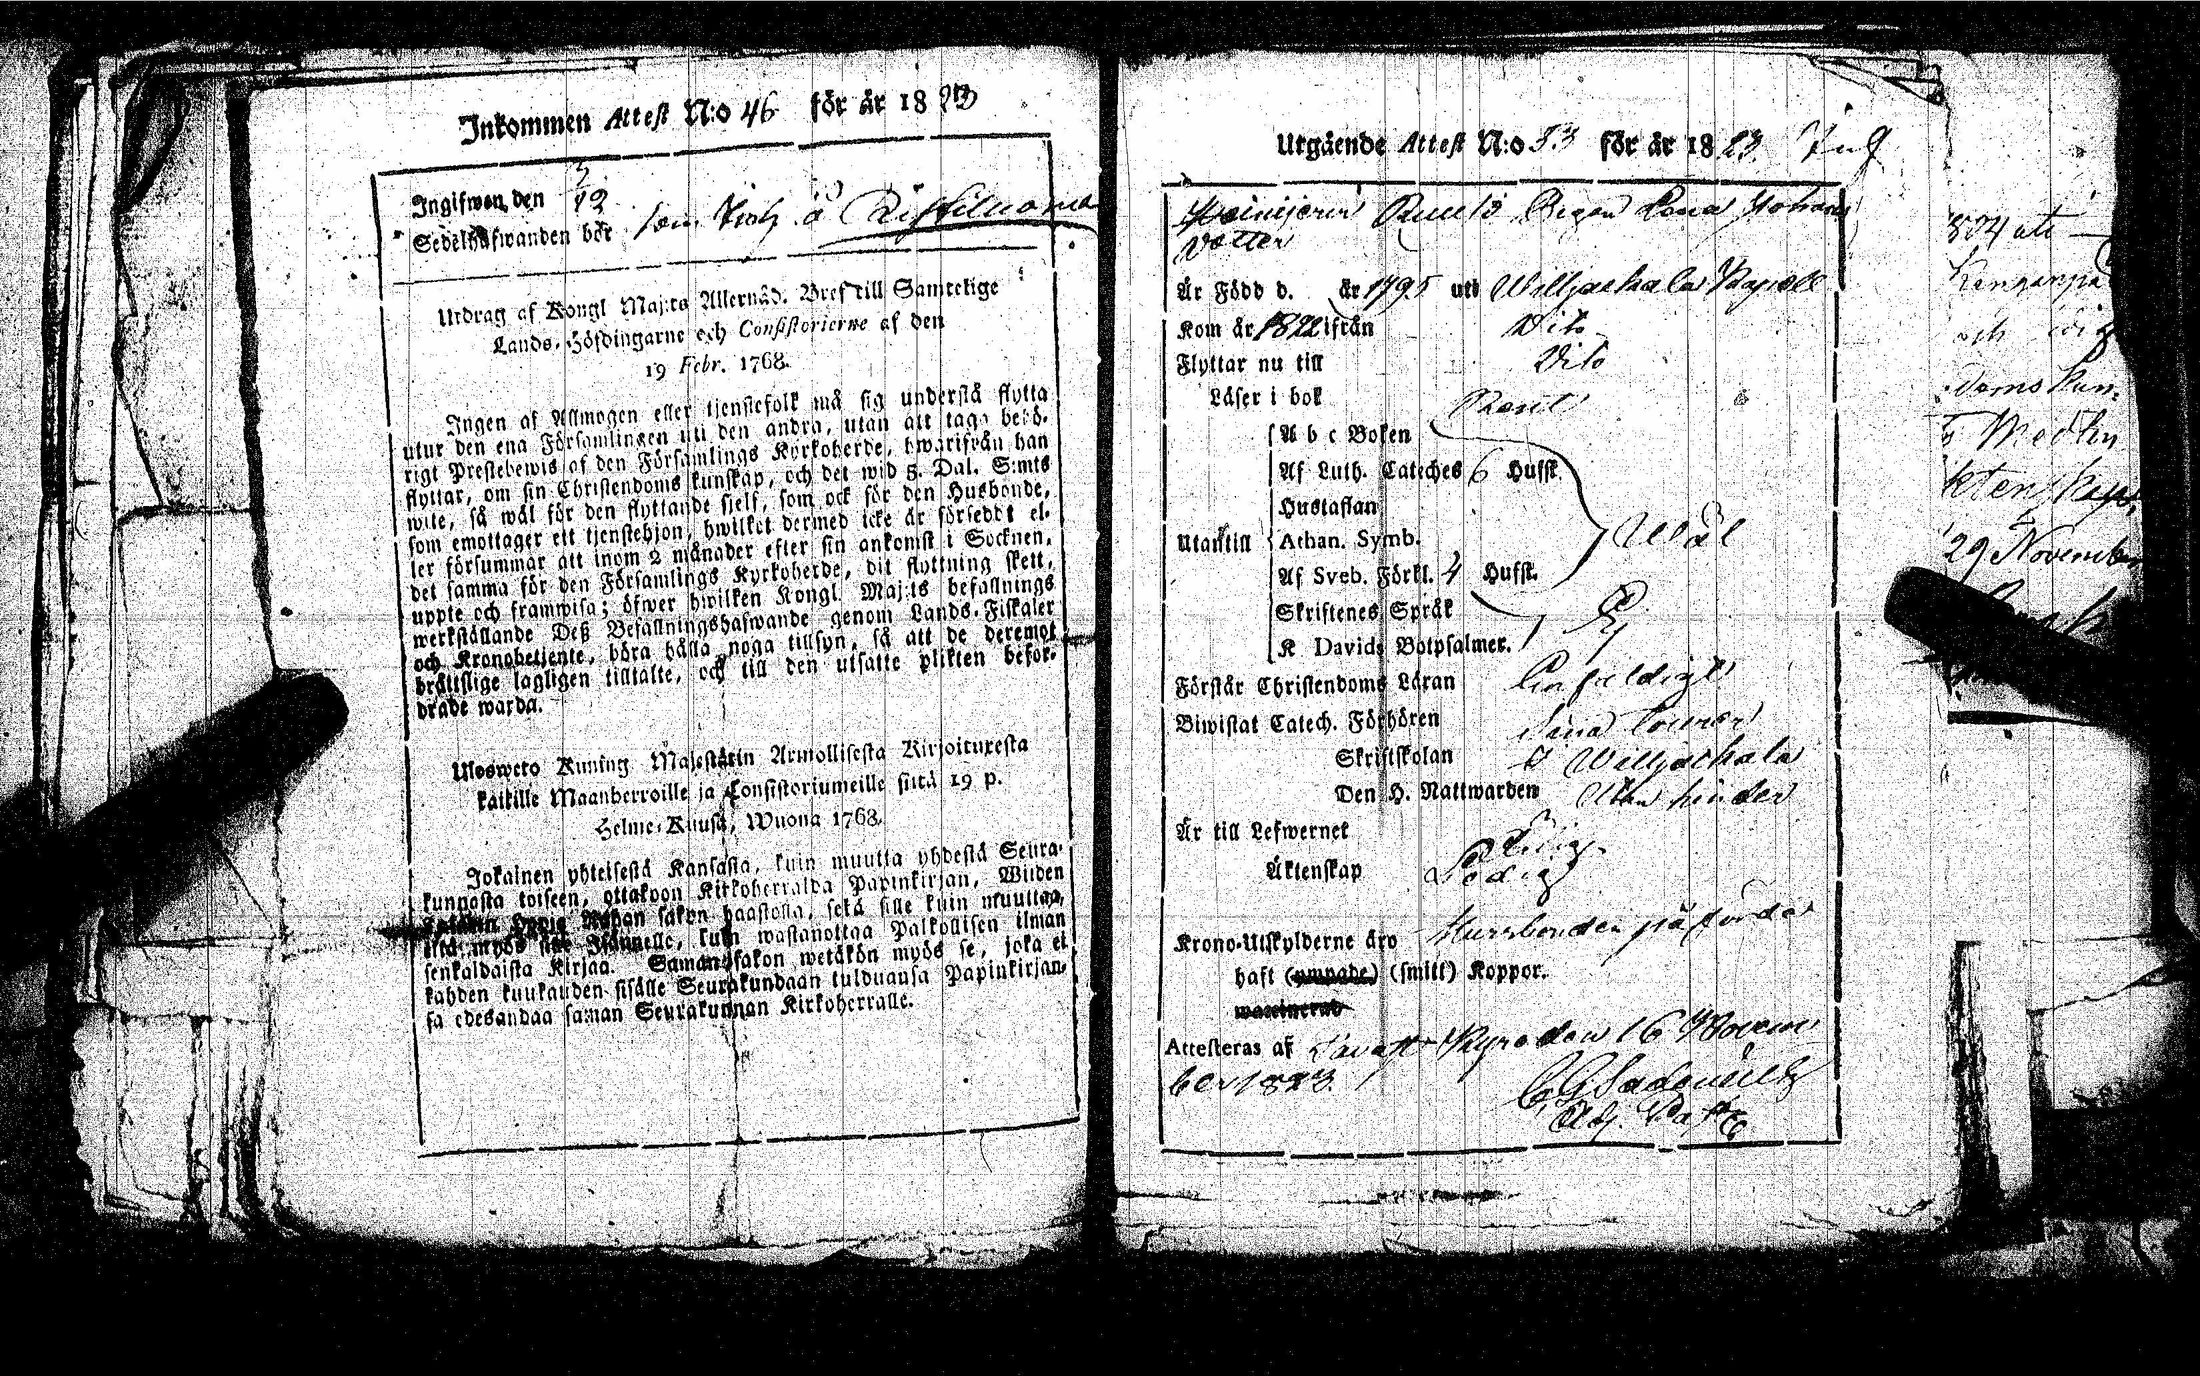 Inkommen Attest N:o 46 för år 1823
Ingifwen den 12
Sedelhafwanden bör som
Utdrag af Kongl Maj:ts Allernåd. Bref till Samtelige
Lands-Höfdingarne och Consistorierne af den
19 Febr. 1768.
Ingen af Allmogen eller tjenstefolk må sig understå flytta
utur den ena Församlingen uti den andra, utan att taga behö-
rigt Prestebewis af den Församlings Kyrkoherde, hwarifrån han
flyttar, om sin Christendoms kunskap, och det wid 5. Dal. S:mts
wite, så wäl för den flyttande sjelf, som ock för den Husbonde,
som emottager ett tjenstehjon, hwilket dermed icke är försedt el-
ler försummar att inom 2 månader efter sin ankomst i Socknen,
det samma för den Församlings Kyrkoherde, dit flyttning skett,
uppte och framwisa; öfwer hwilken Kongl Maj:ts befallnings
werkställande Deß Befallningshafwande genom Lands-Fiskaler
och Kronobetjente, böra hålla noga tillsyn, så att de deremot
brättslige lagligen tilltalte, och till den utsatte plikten befor-
drade warda.
Ulosweto Kuning Majestätin Armollisesta Kirjoituxesta
kaikille Maanherroille ja Consistoriumeille siitä 19 p.
Helme-Kuusa, Wuona 1768.
Jokainen yhteisestä Kansasta, kuin muutta yhdestä Seura-
kunnasta toiseen, ottakoon Kirkoherralda Papinkirjan, Wiiden
sakon haastolla, sekä sille kuin muuttaa,
että myös sille Isännelle, kuin wastanottaa Palkollisen ilman
senkaldaista Kirjaa. Saman sakon wetäkön myös se, joka ei
kahden kuukauden sisälle Seurakundaan tulduansa Papinkirjan-
sa edesandaa saman Seurakunnan Kirkoherralle.
Utgående Attest N:o 53 för år 1823.
Pigan Johans
Dotter
Är Född d. år 1795 uti Willjakkala Kapell
Kom år 1822 ifrån Dito
Flyttar nu till Dito
Läser i bok Rent
A b c Boken
Af Luth. Cateches 6 Hufst.
Hustaflan
Utantill Athan. Symb. Wäl
Af Sveb. Förkl. 4 Hufst.
Skriftenes Språk Ej
K Davids Botpsalmer.
Förstår Christendoms Läran Enfaldigt
Biwistat Catech. Förhören
Skriftskolan i Willjakkala
Den H. Nattwarden Utan hinder
Är till Lefwernet
Äktenskap Ledig
Krono-Utskylderne äro Huusbonden påförda
haft (ympade) (smitt) Koppor.
waccinerad
Attesteras af Tavast Kyro den 16 Novem
ber 1823.
Adj.
uti
och
doms kun-
29 November